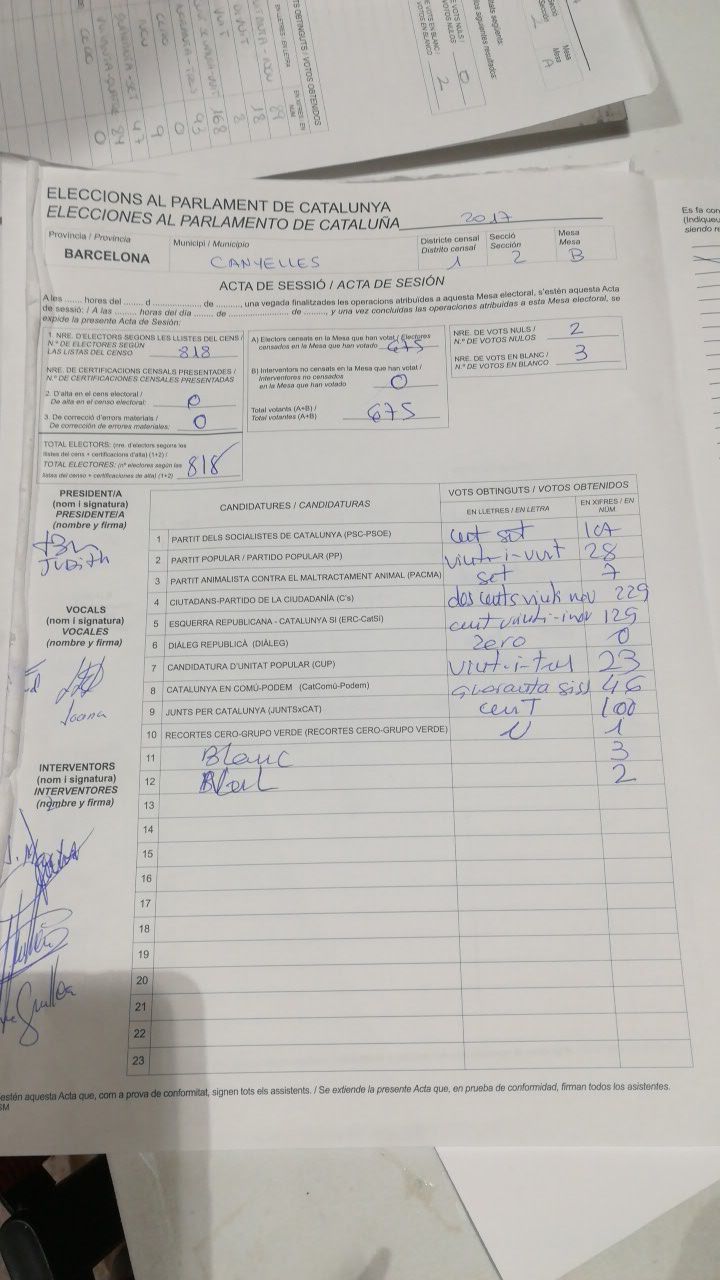 VOTS OBTINGUTS / VOTOS OBTENIDOS
EN LLETRES / EN LETRA
84
18
8
168
93
0
9
47
84
0
ZERO
Secció
Sección
Mesa
Mesa
1
A
0
2
ELECCIONS AL PARLAMENT DE CATALUNYA
ELECCIONES AL PARLAMENTO DE CATALUÑA 2017
Província / Provincia
BARCELONA
Municipi / Municipio
CANYELLES
Districte censal
Distrito censal
1
Secció
Sección
2
Mesa
Mesa
B
ACTA DE SESSIÓ / ACTA DE SESIÓN
A les ....... hores del ....... d ................ de ........., una vegada finalitzades les operacions atribuïdes a aquesta Mesa electoral, s'estén aquesta Acta
de sessió: / A las ........ horas del día ....... de ................ de ........, y una vez concluidas las operaciones atribuidas a esta Mesa electoral, se
expide la presente Acta de Sesión:
1. NRE. D'ELECTORS SEGONS LES LLISTES DEL CENS /
N.º DE ELECTORES SEGÚN
LAS LISTAS DEL CENSO 818
NRE. DE CERTIFICACIONS CENSALS PRESENTADES /
N.º DE CERTIFICACIONES CENSALES PRESENTADAS
2. D'alta en el cens electoral /
De alta en el censo electoral: 0
3. De correcció d'errors materials /
De corrección de errores materiales: 0
TOTAL ELECTORS: (nre. d'electors segons les
llistes del cens + certificacions d'alta) (1+2) /
TOTAL ELECTORES: (nº electores según las
listas del censo + certificaciones de alta) (1+2) 818
A) Electors censats en la Mesa que han votat / Electores
censados en la Mesa que han votado 675
B) Interventors no censats en la Mesa que han votat /
Interventores no censados
en la Mesa que han votado 0
Total votants (A+B) /
Total votantes (A+B) 675
NRE. DE VOTS NULS /
N.º DE VOTOS NULOS 2
NRE. DE VOTS EN BLANC /
N.º DE VOTOS EN BLANCO 3
PRESIDENT/A
(nom i signatura)
PRESIDENTE/A
(nombre y firma)
JUDITH
VOCALS
(nom i signatura)
VOCALES
(nombre y firma)
Joana
INTERVENTORS
(nom i signatura)
INTERVENTORES
(nombre y firma)
CANDIDATURES / CANDIDATURAS
VOTS OBTINGUTS / VOTOS OBTENIDOS
EN LLETRES / EN LETRA
EN XIFRES / EN NÚM.
1 PARTIT DELS SOCIALISTES DE CATALUNYA (PSC-PSOE) cent set 107
2 PARTIT POPULAR / PARTIDO POPULAR (PP) vint-i-vuit 28
3 PARTIT ANIMALISTA CONTRA EL MALTRACTAMENT ANIMAL (PACMA) set 7
4 CIUTADANS-PARTIDO DE LA CIUDADANÍA (C's) dos cents vint nou 229
5 ESQUERRA REPUBLICANA - CATALUNYA SÍ (ERC-CatSí) cent vint-i-nou 129
6 DIÀLEG REPUBLICÀ (DIÀLEG) Zero 0
7 CANDIDATURA D'UNITAT POPULAR (CUP) vint-i-tres 23
8 CATALUNYA EN COMÚ-PODEM (CatComú-Podem) quaranta siss 46
9 JUNTS PER CATALUNYA (JUNTSxCAT) cenT 100
10 RECORTES CERO-GRUPO VERDE (RECORTES CERO-GRUPO VERDE) U 1
11 Blanc 3
12 2
13
14
15
16
17
18
19
20
21
22
23
estén aquesta Acta que, com a prova de conformitat, signen tots els assistents. / Se extiende la presente Acta que, en prueba de conformidad, firman todos los asistentes.
Es fa con
(Indiqueu
siendo re